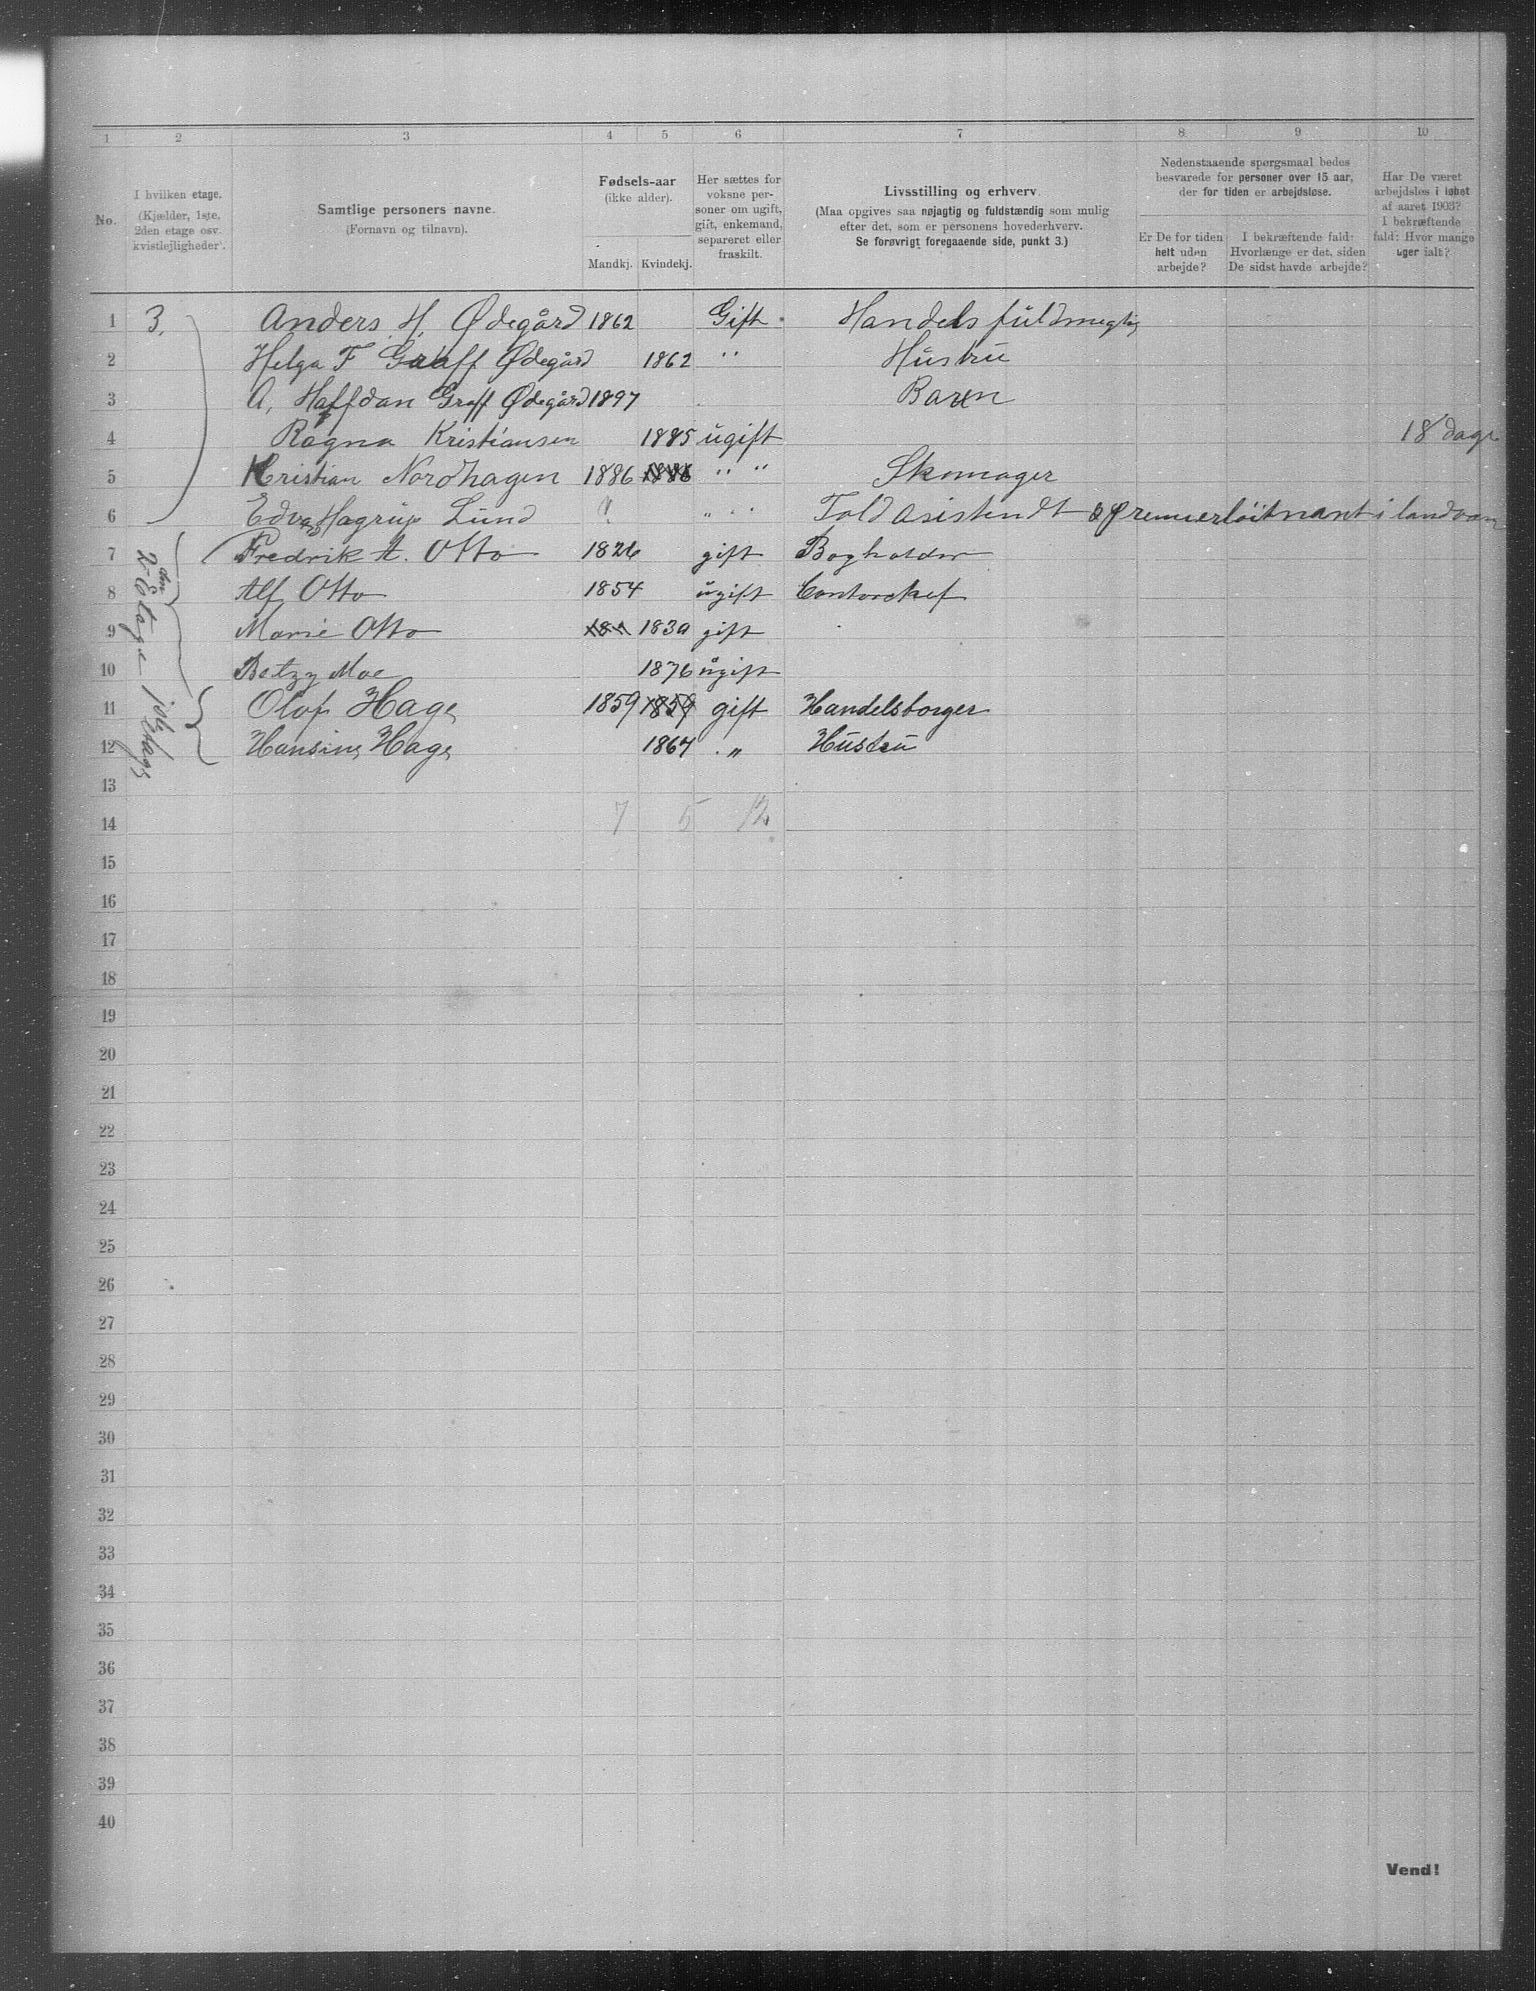 1 2 3 4 5 6 7 8 9 10
No.
I hvilken etage.
(Kjælder, 1ste,
2den etage osv.
kvistlejligheder).
Samtlige personers navne.
(Fornavn og tilnavn).
Fødsels-aar
(ikke alder).
Mandkj. Kvindekj.
Her sættes for
voksne per-
soner om ugift,
gift, enkemand,
separeret eller
fraskilt.
Livsstilling og erhverv.
(Maa opgives saa nøjagtig og fuldstændig som mulig
efter det, som er personens hovederhverv.
Se forøvrigt foregaaende side, punkt 3.)
Nedenstaaende spørgsmaal bedes
besvarede for personer over 15 aar,
der for tiden er arbejdsløse.
Er De for tiden
helt uden
arbejde?
I bekræftende fald:
Hvorlænge er det, siden
De sidst havde arbejde?
Har De været
arbejdsløs i løbet
af aaret 1903?
I bekræftende
fald: Hvor mange
uger ialt?
1 3. Anders H. Ødegård 1862 Gift Handelsfüldmegtig
2 Helga F Graff Ødegård 1862 " Hüstrü
3 A. Halfdan Graff Ødegård 1897 Barn
4 Ragna Kristiansen 1885 ugift 18 dage
5 Kristian Nordhagen 1886 1886 " " Skomager
6 Edv Hagrup Lund ? " " Told asistendt & premierløitnant i landvern
7 2den Etage Fredrik A. Otto 1826 gift Bogholder
8 Alf Otto 1854 ugift Contorchef
9 Marie Otto 1830 gift
10 Betzy Moe 1876 ugift
11 Olof Hage 1859 1859 gift Handelsborger
12 Hansine Hage 1867 " Hüstrü
13
14 7 5 12
15
16
17
18
19
20
21
22
23
24
25
26
27
28
29
30
31
32
33
34
35
36
37
38
39
40
Vend!